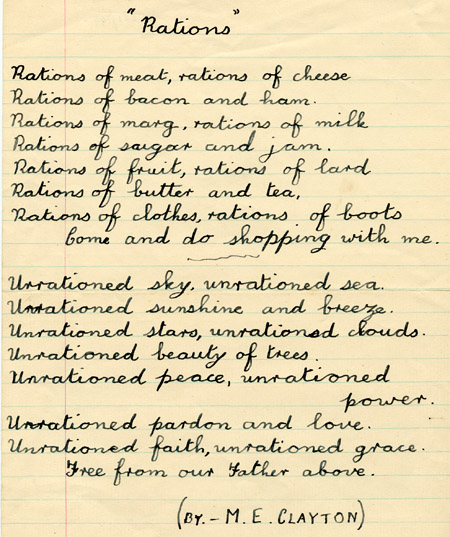 "Rations"
Rations of meat, rations of cheese
Rations of bacon and ham.
Rations of marg, rations of milk
Rations of saugar and jam.
Rations of fruit, rations of lard
Rations of butter and tea,
Rations of clothes, rations of boots
Come and do shopping with me.
Unrationed sky, unrationed sea.
Unrationed sunshine and breeze.
Unrationed stars, unrationed clouds.
Unrationed beauty of trees.
Unrationed peace, unrationed
power.
Unrationed pardon and love.
Unrationed faith, unrationed grace.
Free from our Father above.
(BY.- M. E. CLAYTON)